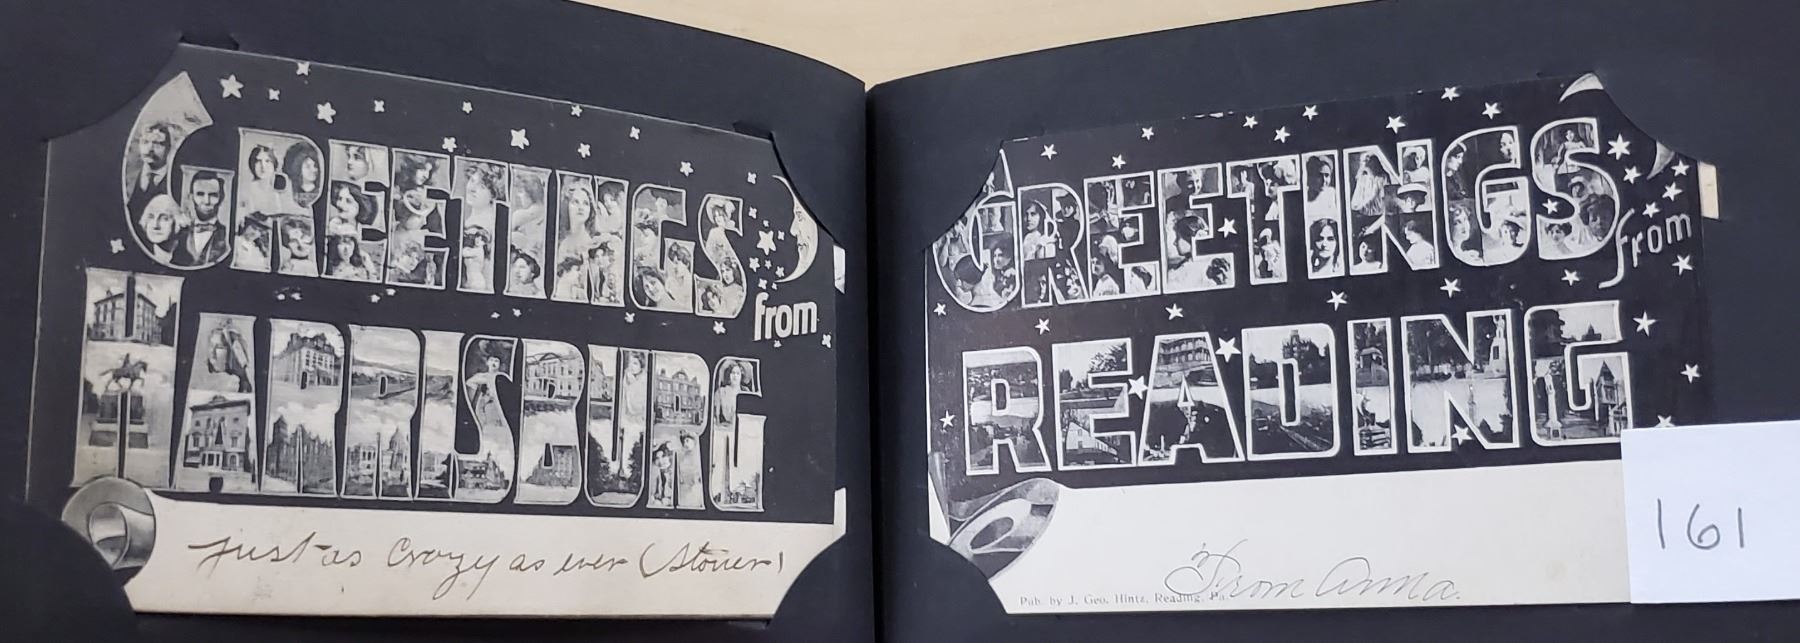 GREETINGS
from
HARRISBURG
just as Crazy as ever (Stoner)
GREETINGS
from
READING
From Anna.
Pub. by J. Geo. Hintz, Reading, Pa.
161